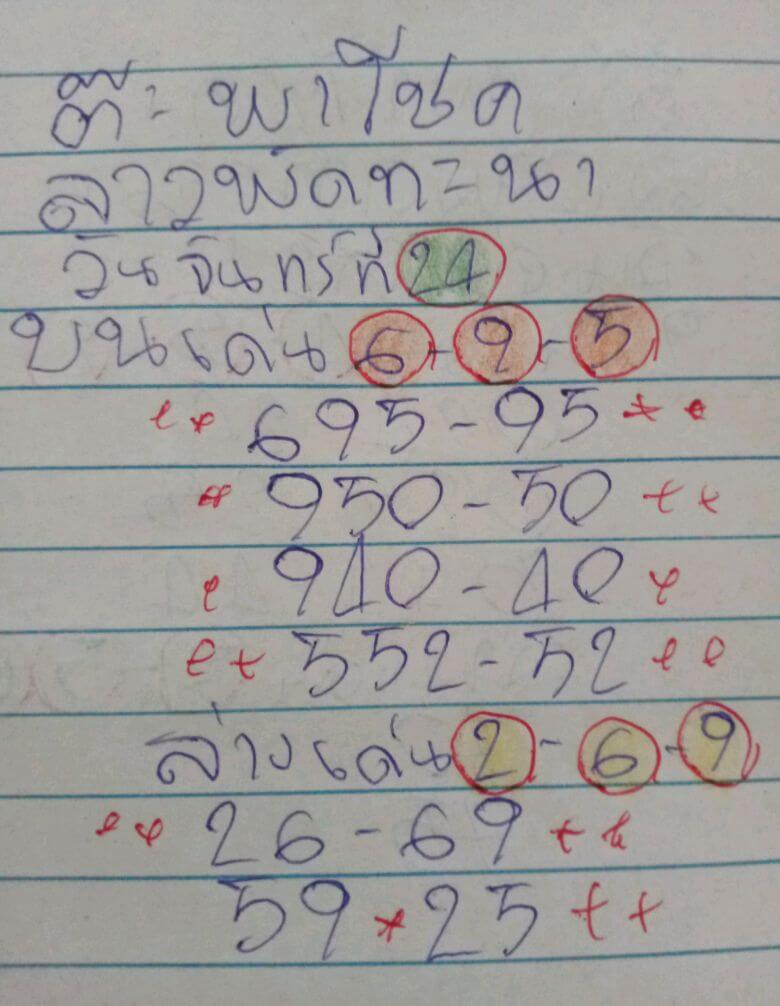 ต๊ะ พาโชค
ลาวพัดทะนา
วันจันทร์ที่ 24
บนเด่น 6-9-5
695-95
950-50
940-40
552-52
ล่างเด่น 2-6-9
26-69
59*25